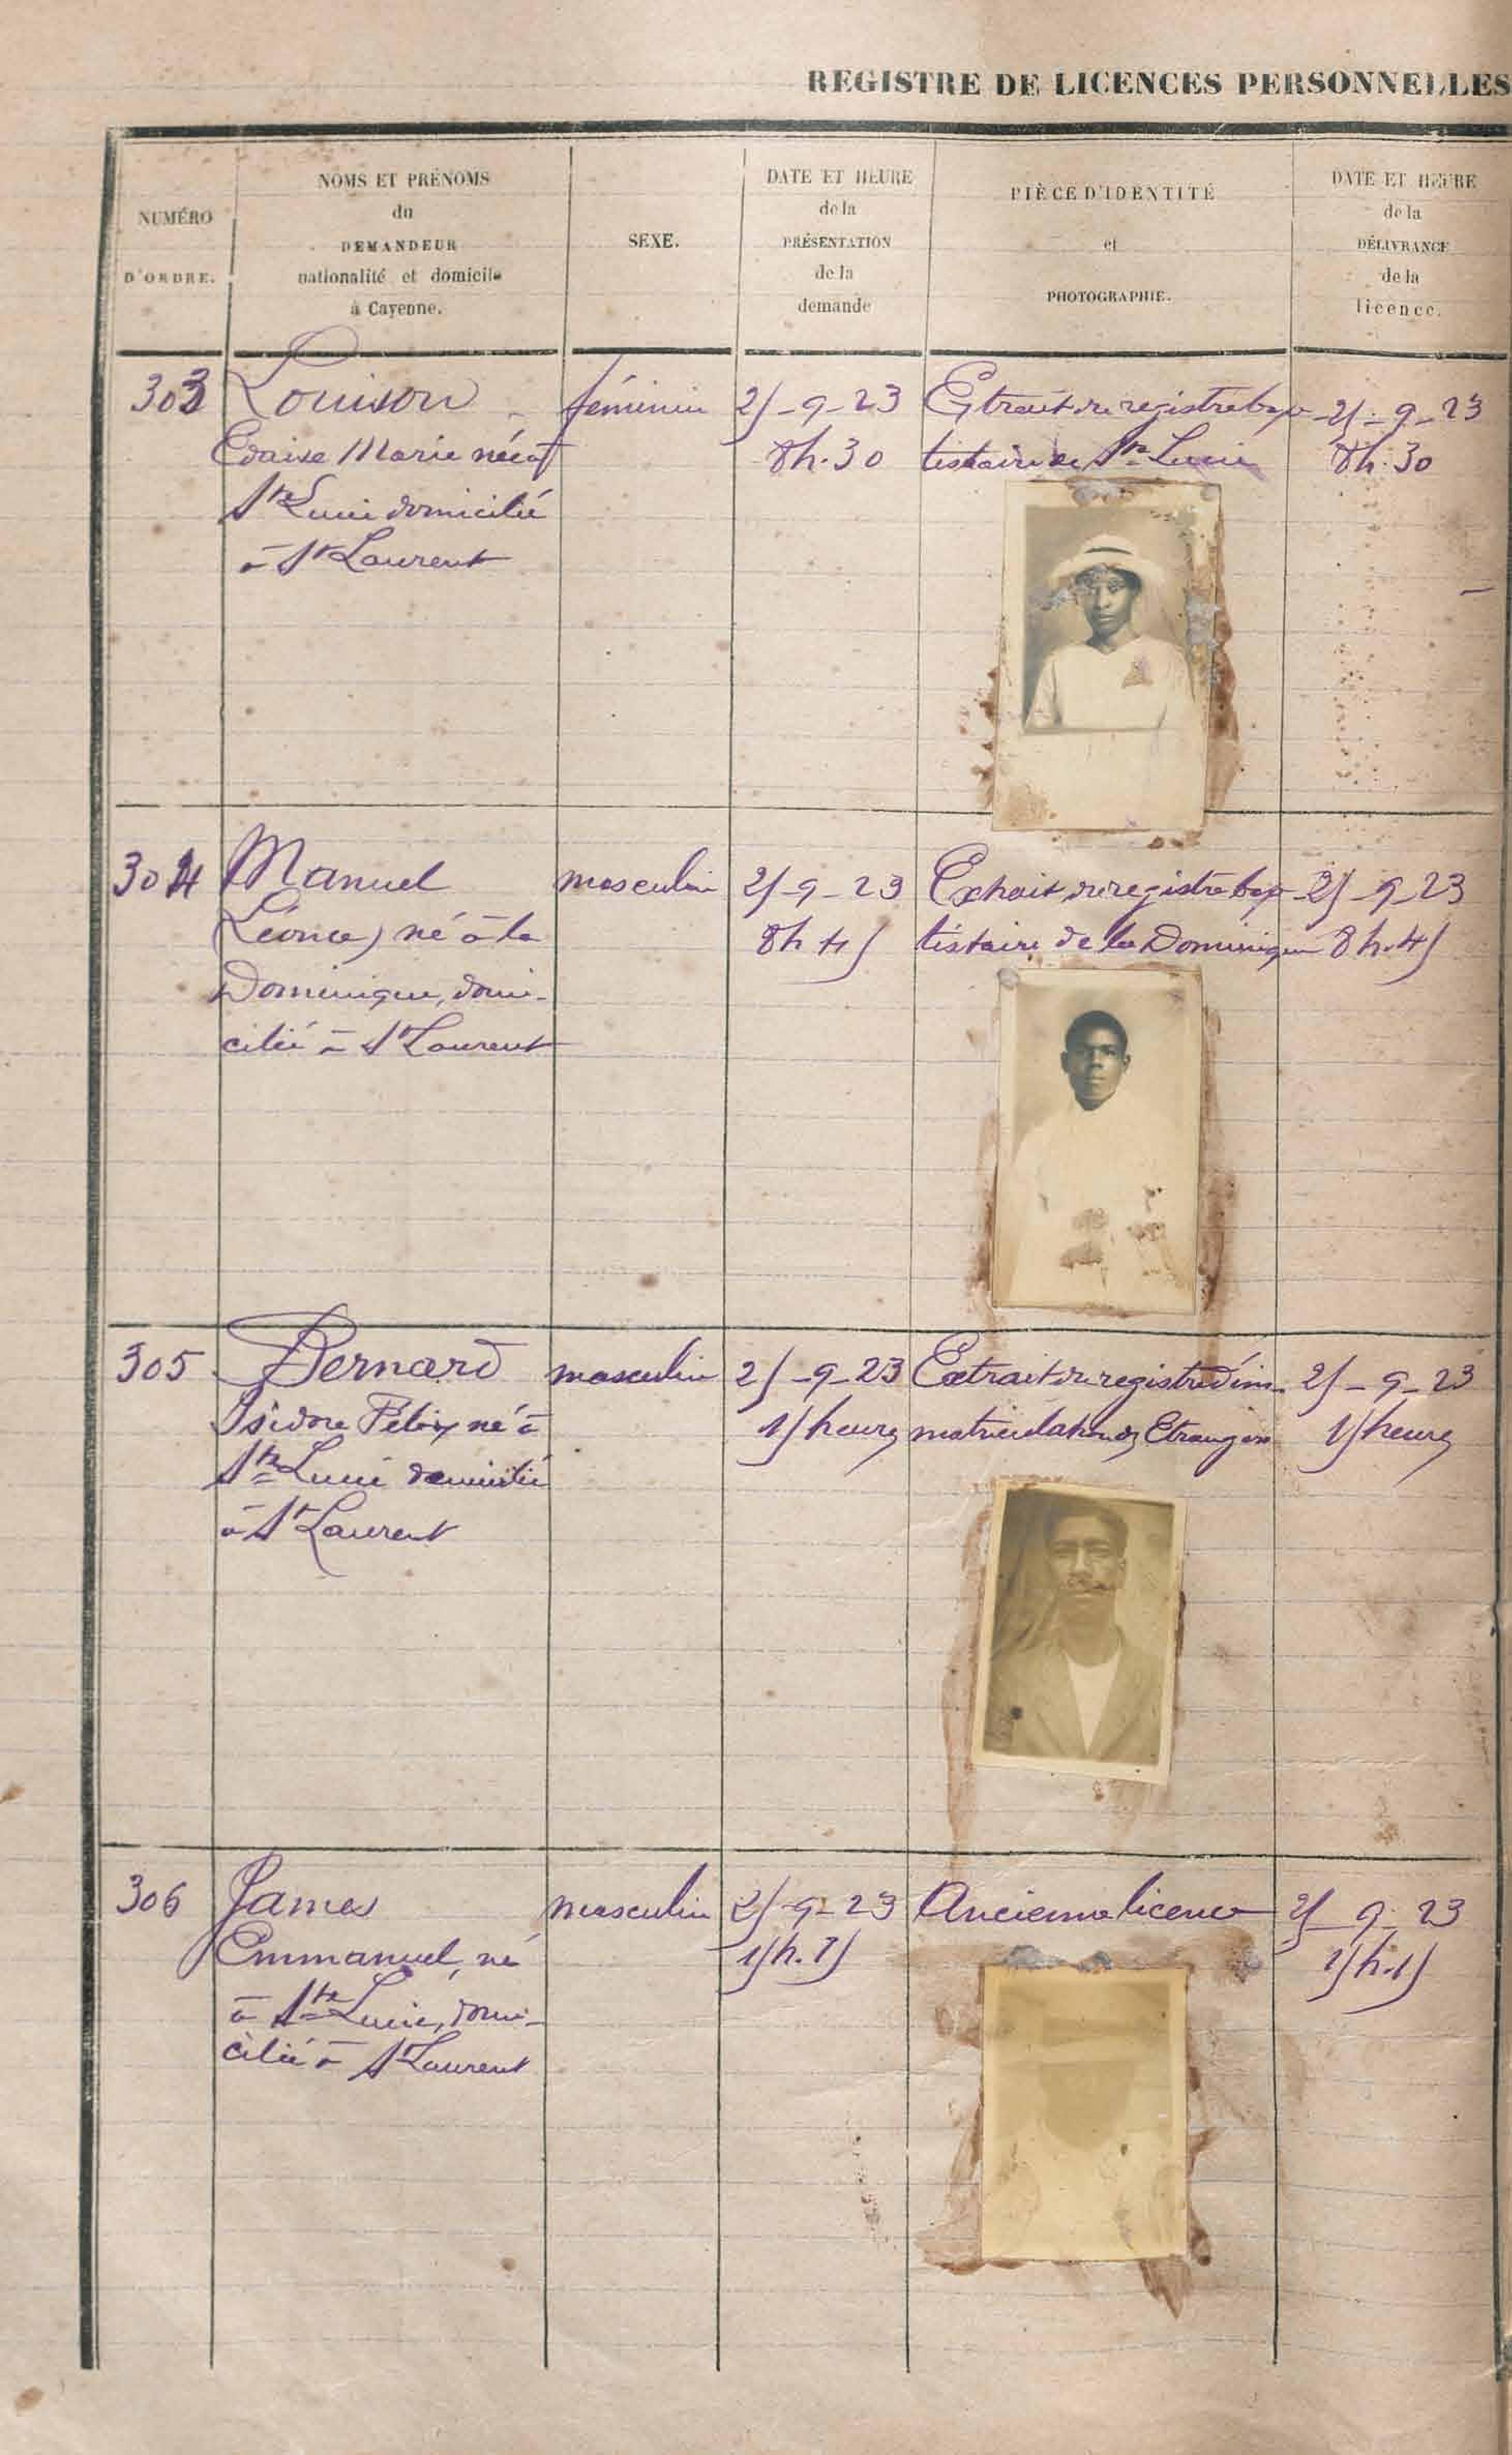 REGISTRE DE LICENCES PERSONNELLES
NUMÉRO
D'ORDRE.
NOMS ET PRÉNOMS
du
DEMANDEUR
nationalité et domicile
à Cayenne.
SEXE.
DATE ET HEURE
de la
PRÉSENTATION
de la
demande
PIÈCE D'IDENTITÉ
et
PHOTOGRAPHIE.
DATE ET HEURE
de la
DÉLIVRANCE
de la
licence.
303
Louison
Marie née à
Ste Lucie domicilié
à St Laurent
féminin
25-9-23
8h.30
Extrait du registre bap-
tistaire de Ste Lucie
25-9-23
8h.30
304
Manuel
(Léonce) né à la
Dominique, domi-
cilié à St Laurent
masculin
25-9-23
8h 45
Extrait du registre bap-
tistaire de la Dominique
25-9-23
8h.45
305
Bernard
Isidore Félix né à
Ste Lucie domicilié
à St Laurent
masculin
25-9-23
15 heures
Extrait du registre d'im-
matriculation des Etrangers
25-9-23
15 heures
306
James
Emmanuel, né
à Ste Lucie, domi-
cilié à St Laurent
masculin
25-9-23
15h.15
Ancienne licence
25-9-23
15h.15